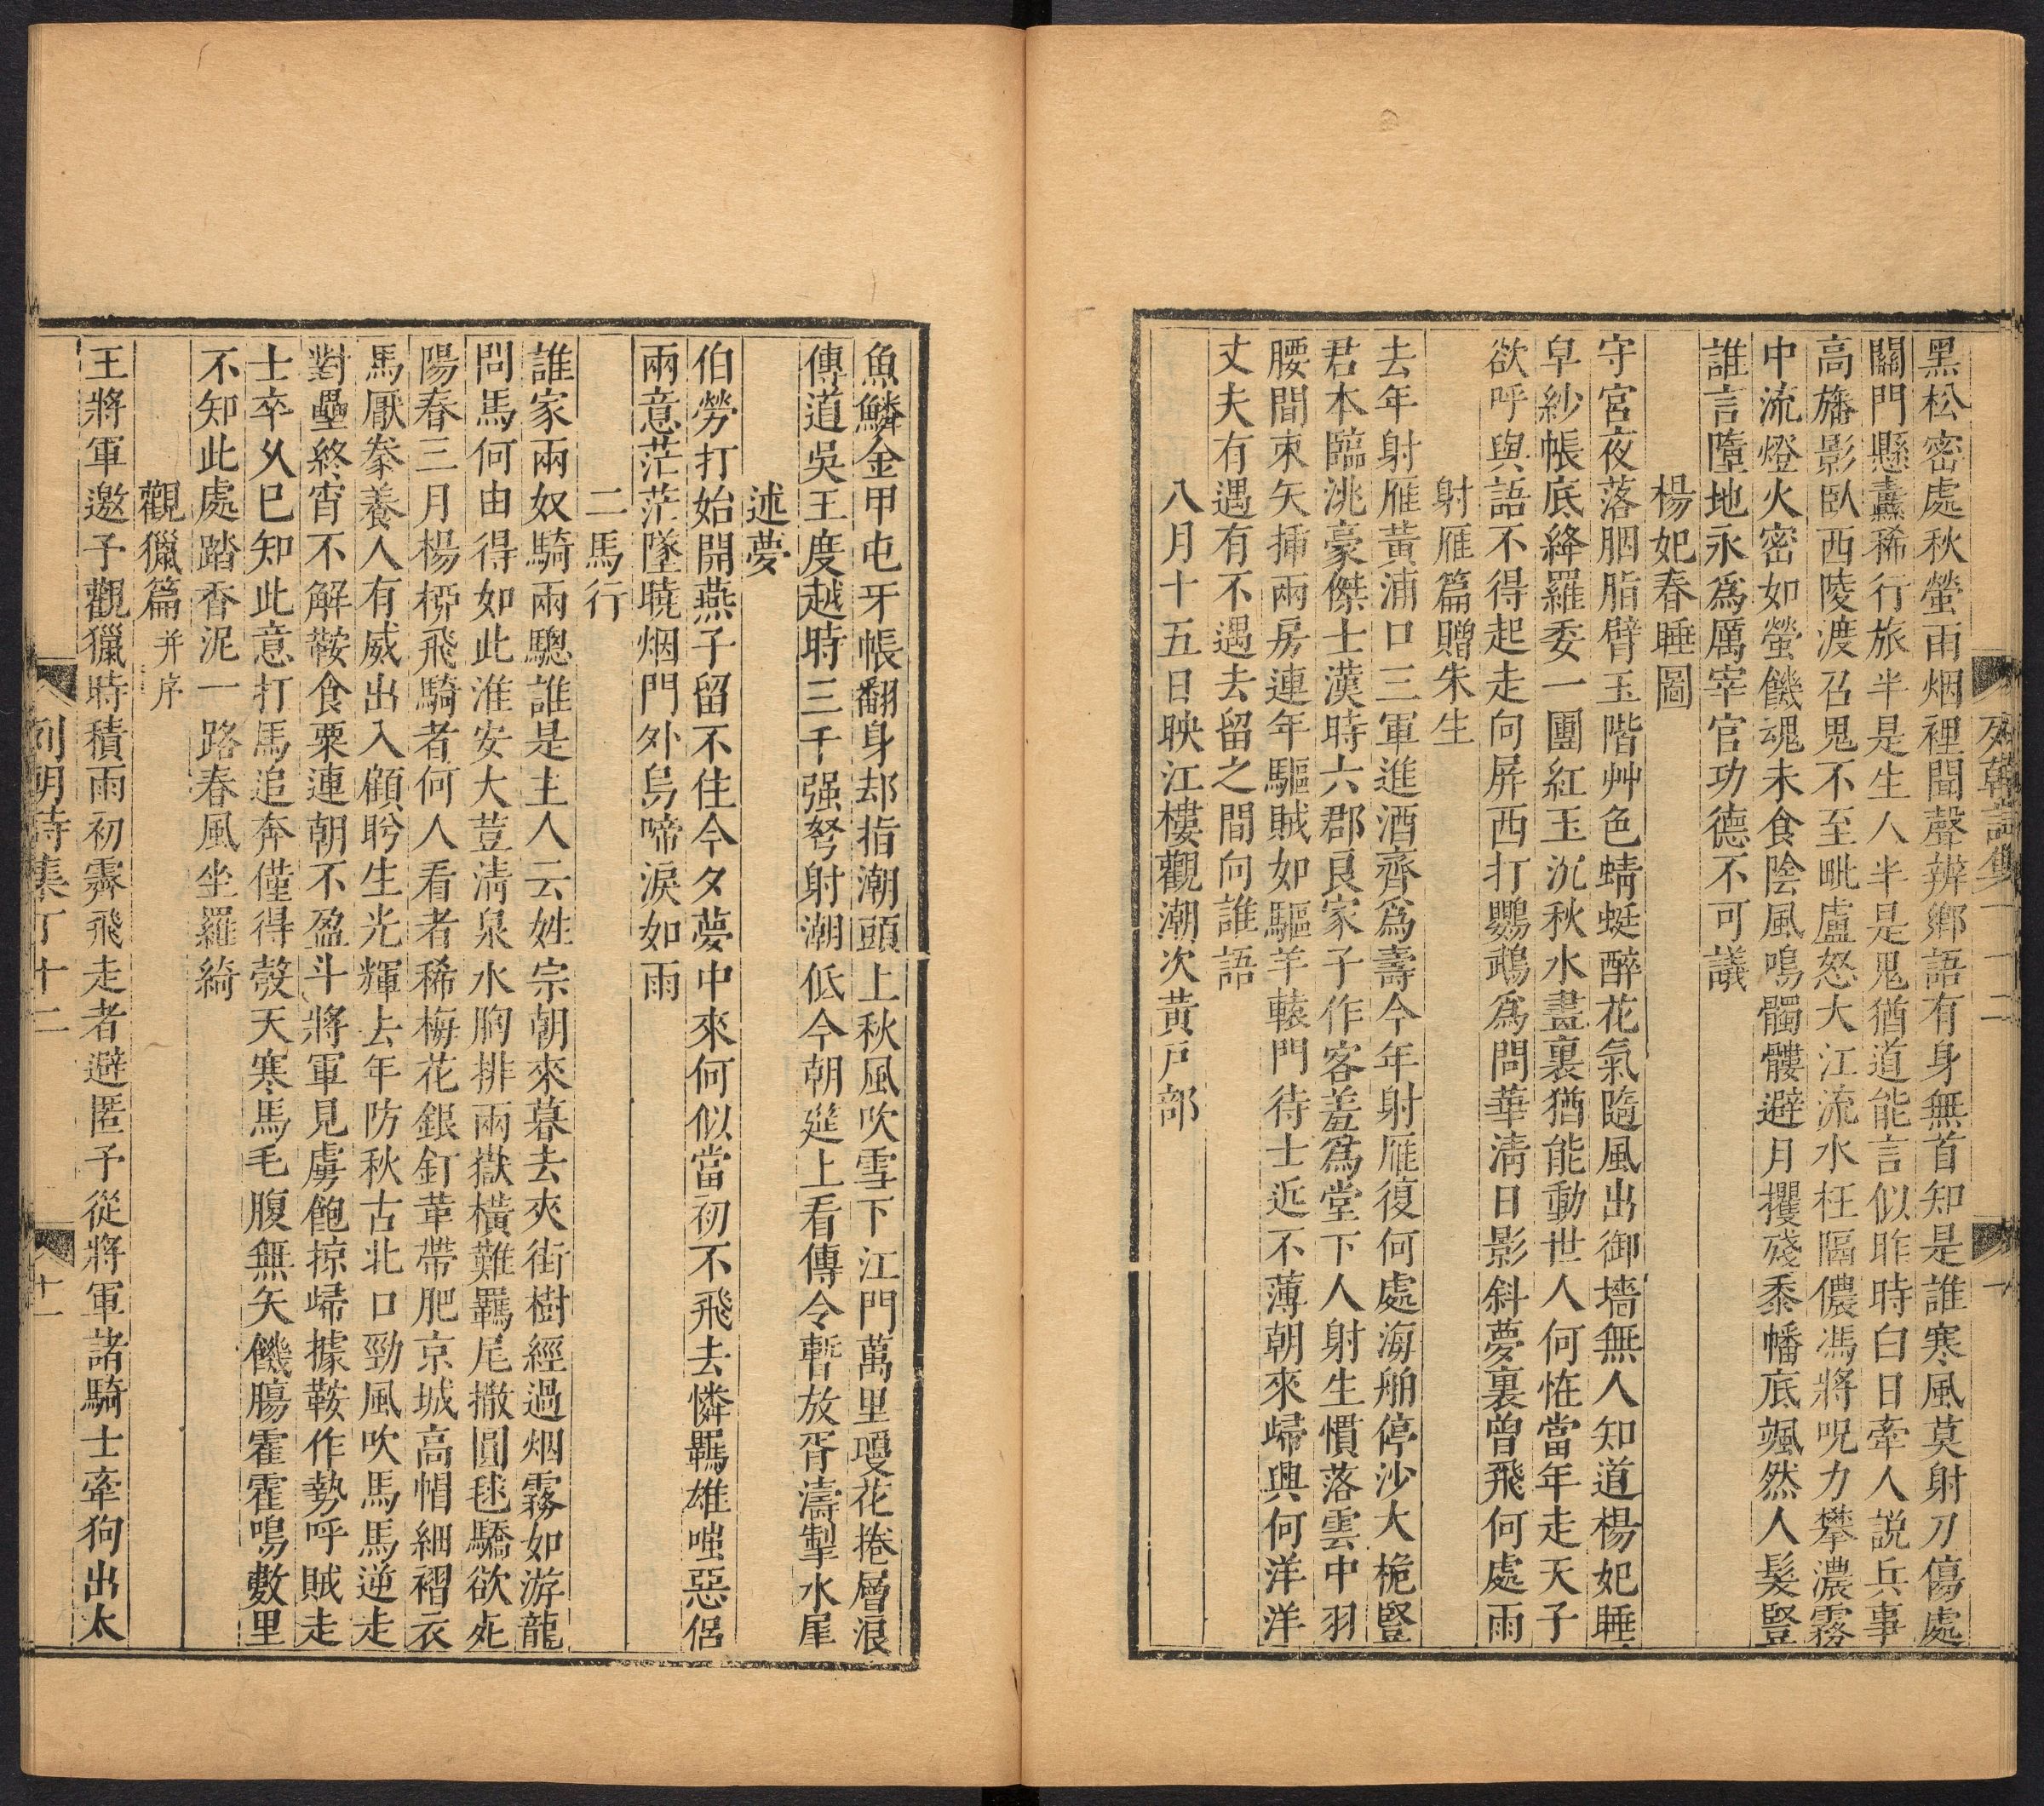 列朝詩集丁十二
黑松密處秋螢雨烟裡聞聲辨鄉語有身無首知是誰寒風莫射刀傷處
關門懸纛稀行旅半是生人半是鬼猶道能言似昨時白日牽人說兵事
高旛影臥西陵渡召鬼不至毗盧怒大江流水枉隔儂馮將呪力攀濃霧
中流燈火密如螢饑魂未食陰風鳴髑髏避月攫殘黍幡底颯然人髮豎
誰言墮地永爲厲宰官功德不可議
楊妃春睡圖
守宮夜落胭脂臂玉階艸色蜻蜓醉花氣隨風出御墻無人知道楊妃睡
皁紗帳底絳羅委一團紅玉沉秋水畫裏猶能動世人何恠當年走天子
欲呼與語不得起走向屏西打鸚鵡爲問華清日影斜夢裏曾飛何處雨
射雁篇贈朱生
去年射雁黃浦口三軍進酒齊爲壽今年射雁復何處海舶停沙大桅豎
君本臨洮豪傑士漢時六郡良家子作客羞爲堂下人射生慣落雲中羽
腰間束矢揷兩房連年驅賊如驅羊轅門待士近不薄朝來歸興何洋洋
丈夫有遇有不遇去留之間向誰語
八月十五日映江樓觀潮次黃戸部
魚鱗金甲屯牙帳翻身却指潮頭上秋風吹雪下江門萬里瓊花捲層浪
傳道吳王度越時三千强弩射潮低今朝筵上看傳令暫放胥濤掣水犀
述夢
伯勞打始開燕子留不住今夕夢中來何似當初不飛去憐羈雄嗤惡侶
兩意茫茫墜曉烟門外烏啼淚如雨
二馬行
誰家兩奴騎兩驄誰是主人云姓宗朝來暮去夾街樹經過烟霧如游龍
問馬何由得如此淮安大荳清泉水胸排兩嶽橫難羈尾撒圓毬驕欲死
陽春三月楊栁飛騎者何人看者稀梅花銀釘革帶肥京城高帽細褶衣
馬厭豢養人有威出入顧盻生光輝去年防秋古北口勁風吹馬馬逆走
對壘終宵不解鞍食粟連朝不盈斗將軍見虜飽掠歸據鞍作勢呼賊走
士卒乆巳知此意打馬追奔僅得骰天寒馬毛腹無矢饑膓霍霍鳴數里
不知此處踏香泥一路春風坐羅綺
觀獵篇并序
王將軍邀予觀獵時積雨初霽飛走者避匿予從將軍諸騎士牽狗出太
列朝詩集丁十二
十一